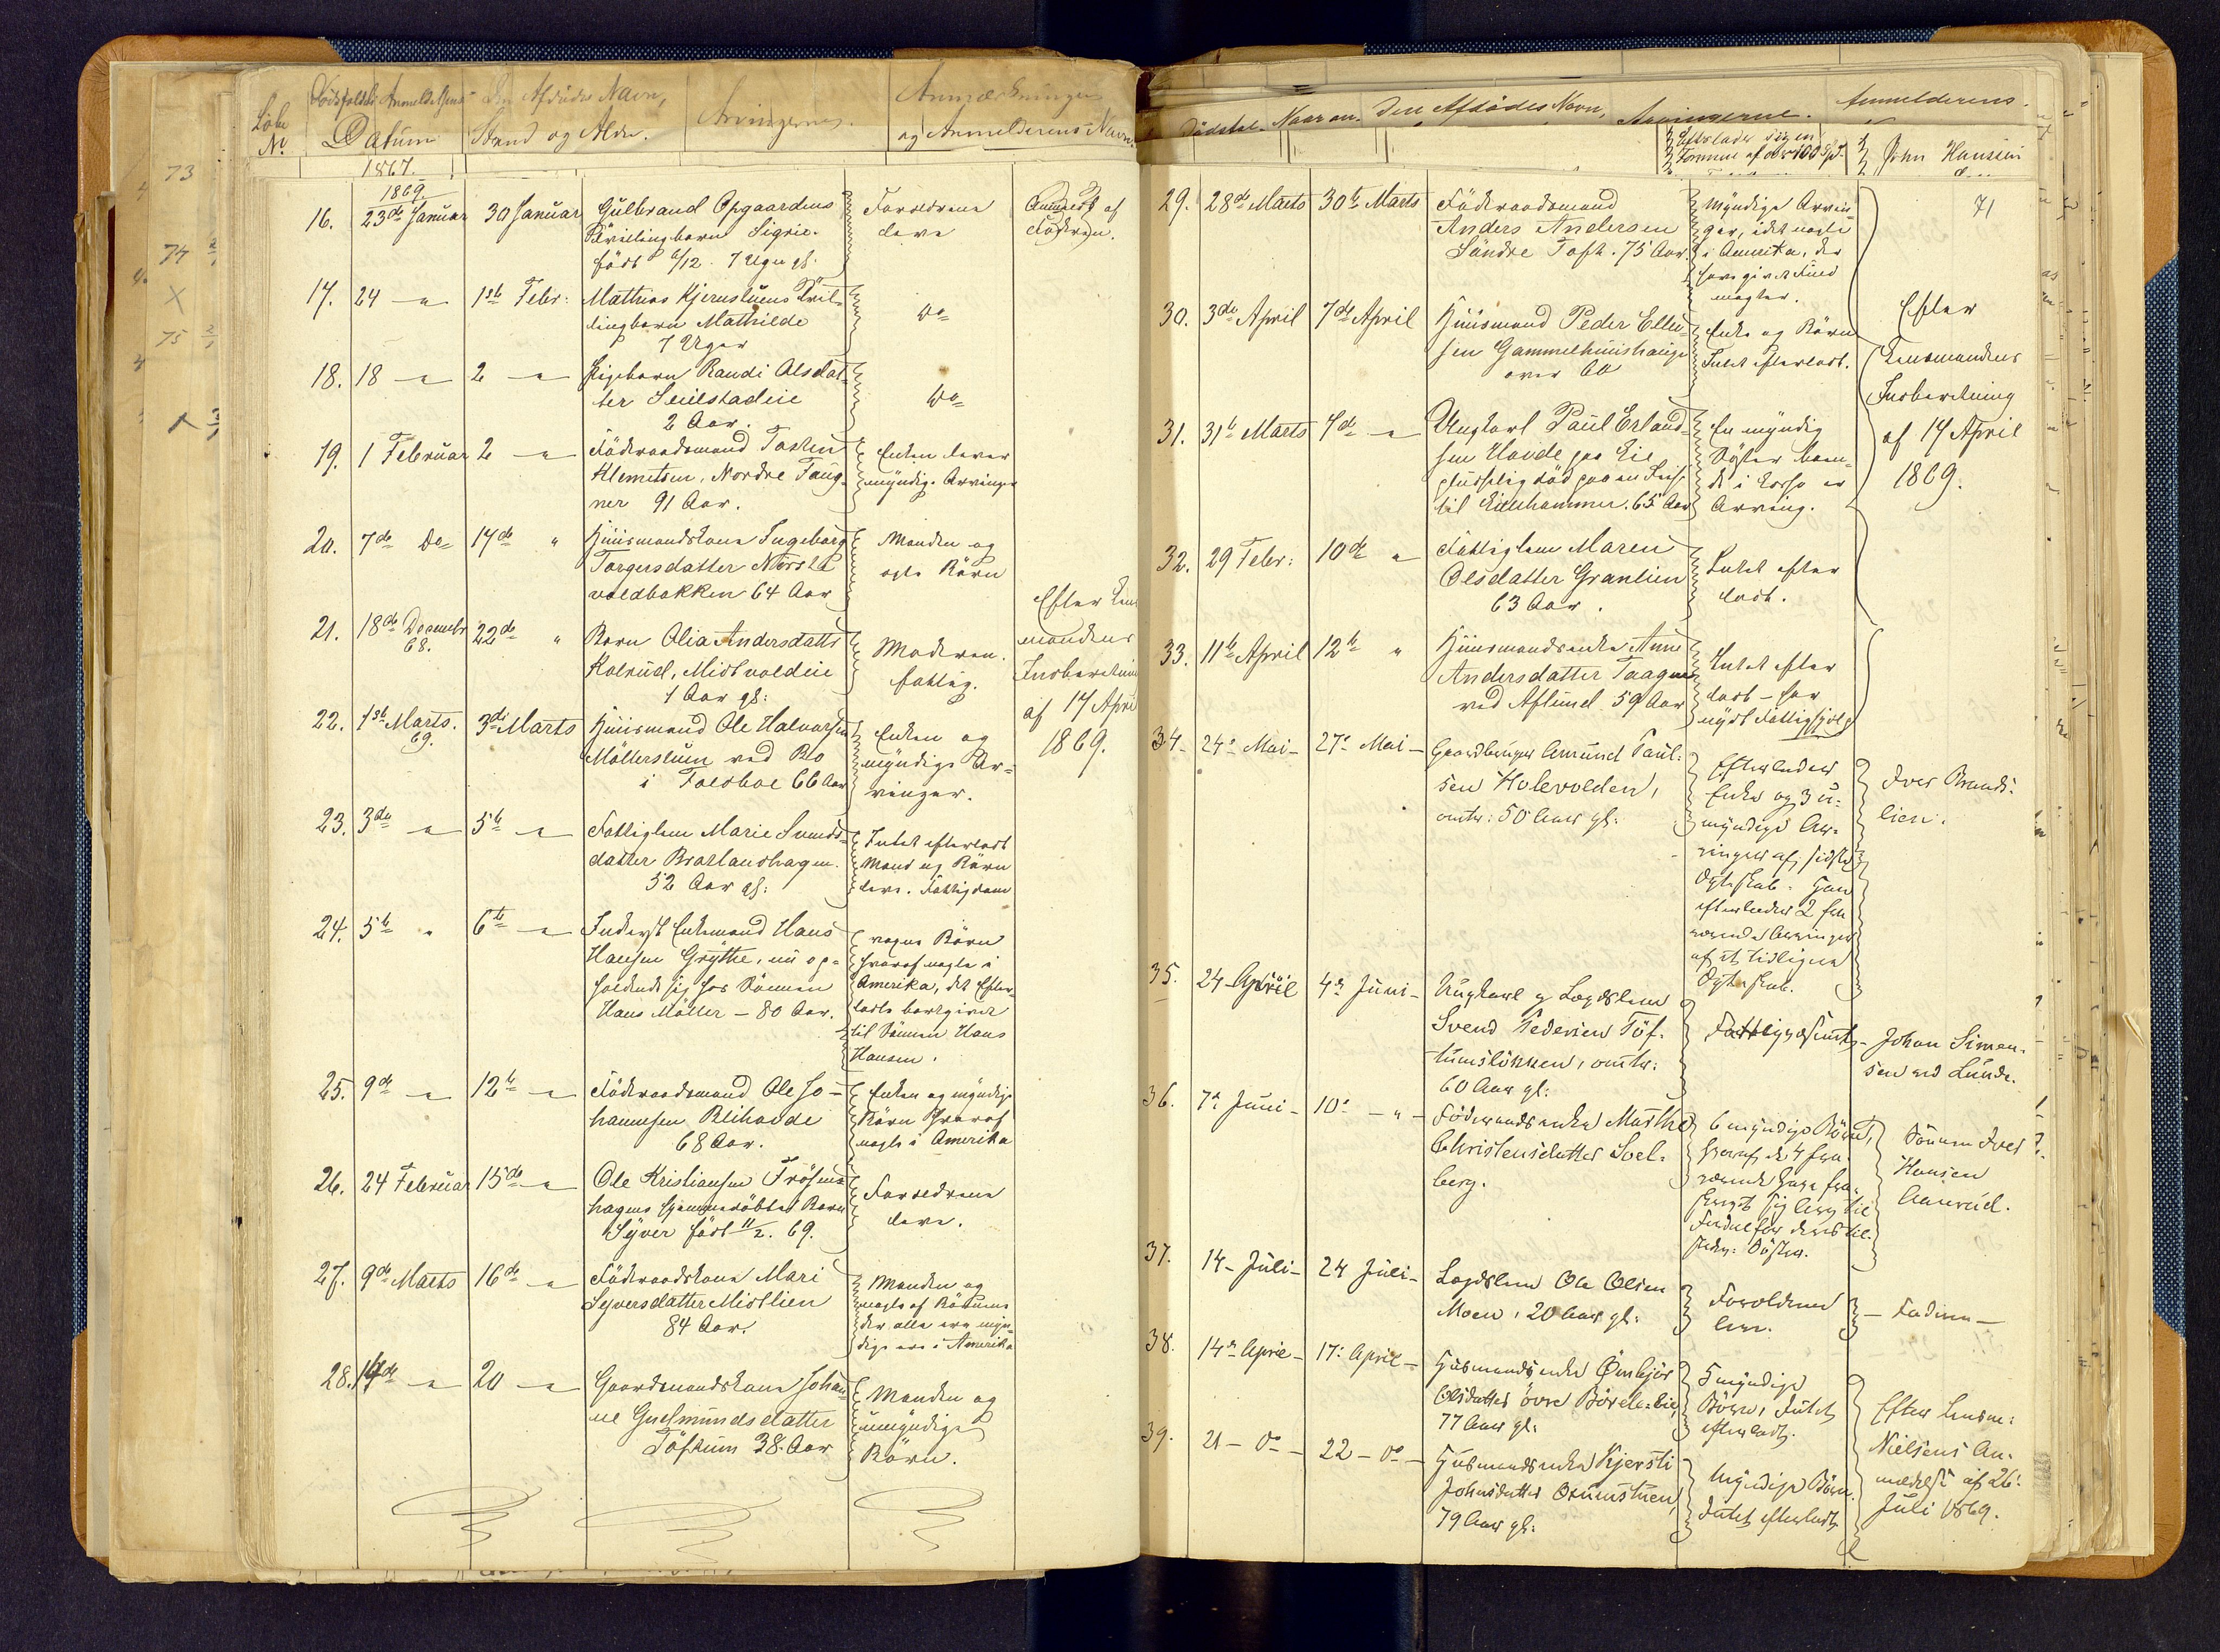 Löbe
Nr.
Dödsfaldets Anmeldelsens
Datum
Den Afdödes Navn,
Stand og Alder.
Arvingerne.
Anmærkninger
og Anmelderens Navn.
1867.
1869
16. 23de Januar 30 Januar Gulbrand Opgaardens
Tvillingbarn Sigrie.
födt 6/12. 7 Uger gl.
Forældrene
leve
Anmeldt af
Faderen.
17. 24 - " - 1ste Febr: Mathias Kjernsluens Tvil-
lingbarn Mathilde
7 Uger
Do
18. 18 - " 2 - " Pigebarn Randi Olsdat-
ter Seielstadeie
2 Aar.
Do
19. 1 Februar 2 - " Föderaadsmand Tosten
Klemetsen, Nordre Faug-
ner 91 Aar.
Enken lever
myndige Arvinger
20. 7de Do 14de " Huusmandskone Ingeborg
Torgersdatter Nörste
voldbakken 64 Aar
Manden og
ægte Börn
21. 18de Decembr 22de " Barn Olia Andersdatter
68.
Kolrud, Midtvoldeie
1 Aar gl:
Moderen
fattig.
Efter Lens
mandens
Indberetning
af 14 April
1869.
22. 1ste Marts. 3die Marts Huusmand Ole Halvorsen
69.
Möllerstuen ved Bro
i Foldboe 66 Aar
Enken og
myndige Ar-
vinger.
23. 3die " 5te " Fattiglem Marie Svends-
datter Bratlandhagen.
52 Aar gl:
Intet efterladt
Mand og Börn
leve. Fattigdom
24. 5te " 6te " Inderst Enkemand Hans
Hansen Grythe, nu op-
holdende sig hos Sönnen
Hans Möller - 80 Aar.
voxne Börn
hvoraf nogle i
Amerika, det Efter-
ladte bortgivet
til Sönnen Hans
Hansen.
25. 9de " 12te " Föderaadsmand Ole Jo-
hannesen Blihovde
68 Aar.
Enken og myndige
Börn hvoraf
nogle i Amerika
26. 24 Februar 15de " Ole Kristiansen Fröisens-
hagens hjemmedöbte Barn
Syver födt 11/2. 69.
Forældrene
leve.
27. 9de Marts 16de " Föderaadskone Mari
Syversdatter Midtlien
84 Aar.
Manden og
nogle af Börnene
der alle ere myn-
dige ere i Amerika
28. 14de " 20 " Gaardmandskone Johan-
ne Gudmundsdatter
Töftum 38. Aar
Manden og
umyndige
Börn.
Dödsfal- Naar an- Den Afdödes Navn, Arvingerne. Anmelderens
Efterlader sig en
Formue af over 100 Spd.
John Hansen
71
29. 28de Marts 30te Marts Föderaadsmand
Anders Andersen
Söndre Toft. 75 Aar.
Myndige Arvin-
ger, idet nogle
i Amerika, der
have givet Fuld
magter.
30. 3die April 7de April Huusmand Peder Elle-
sen Gammelhuushauge
over 60
Enke og Börn
Intet efterladt.
31. 31te Marts 7de " Ungkarl Paul Erland-
sen Hovde paa Eie
pludselig död paa en Reise
til Lillehammer. 65 Aar
En myndig
Söster boen-
de i Lessø er
Arving.
Efter
Lensmandens
Indberetning
af 14 April
1869.
32. 29 Febr: 10de " Fattiglem Maren
Olsdatter Granlien
63 Aar.
Intet efter
ladt.
33. 11te April 12te " Huusmandsenke Anne
Andersdatter Faagne
ved Aflund 59 Aar
Intet efter
ladt - har
nydt Fattighjelp
34- 24de Mai- 27de Mai- Gaardbruger Amund Paul-
sen Holevolden,
omtr: 50 Aar gl:
Efterlader
Enke og 3 u-
myndige Ar-
vinger af sidste
Ægteskab. Han
efterlader 2 fra
værende Arvinger
af et tidligere
Ægteskab.
Iver Brands-
lien.
35. 24 April 4de Juni- Ungkarl og Lægdslem
Svend Pedersen Töf-
tumslökken, omtr:
60 Aar gl:
Johan Simen-
sen ved Lunde.
36. 7de Juni- 10de - " - Föderaadsenke Marthe
Christensdatter Soel-
berg.
6 myndige Börn,
hvoraf de 4 fra-
værende have fra-
skrevet sig Arv til
Fordel for deres til-
stedev: Söster.
Sönnen Iver
Hansen
Aanrud.
37. 14- Juli- 24 Juli- Lægdslem Ole Olsen
Moen, 20 Aar gl:
Forældrene
lever.
- Faderen -
38. 14de April- 17de April- Huusmandsenke Ömbjör
Olsdatter övre Börde-eie,
77 Aar gl:
5 myndige
Börn, Intet
efterladt.
39. 21 - Do - 22 - Do - Huusmandsenke Kjersti
Johnsdatter Brunstuen
79 Aar gl:
Myndige Börn.
Intet efterladt
Efter Lensm:
Nielsens An-
meldelse af 26de
Juli 1869.